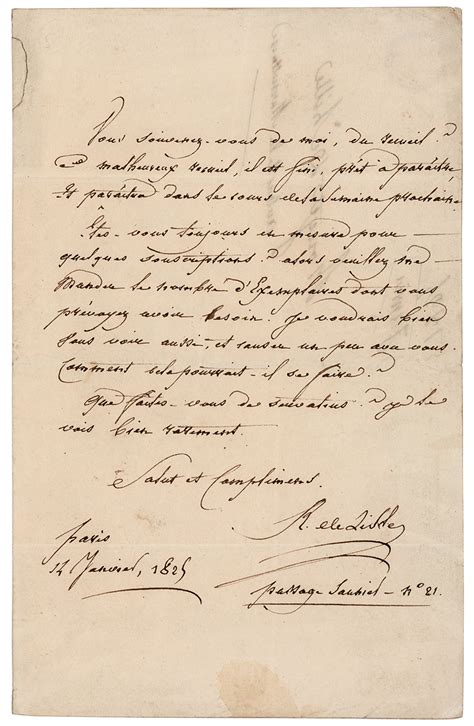 Vous souvenez-vous de moi, du recueil?
Ce malheureux recueil, il est fini, prêt à paraître
Et paraîtra dans le cours de la semaine prochaine.
Êtes-vous toujours en mesure pour
quelques souscriptions? alors veuillez me
Mander le nombre d'Exemplaires dont vous
prévoyez avoir besoin. Je voudrais bien
vous voir aussi, et causer un peu avec vous.
Comment cela pourrait-il se faire?
Que faites-vous de ? je le
vois bien rarement.
Salut et Compliments.
R. de Lisle
paris
14 Janvier, 1825
passage Saulnier - n° 21.